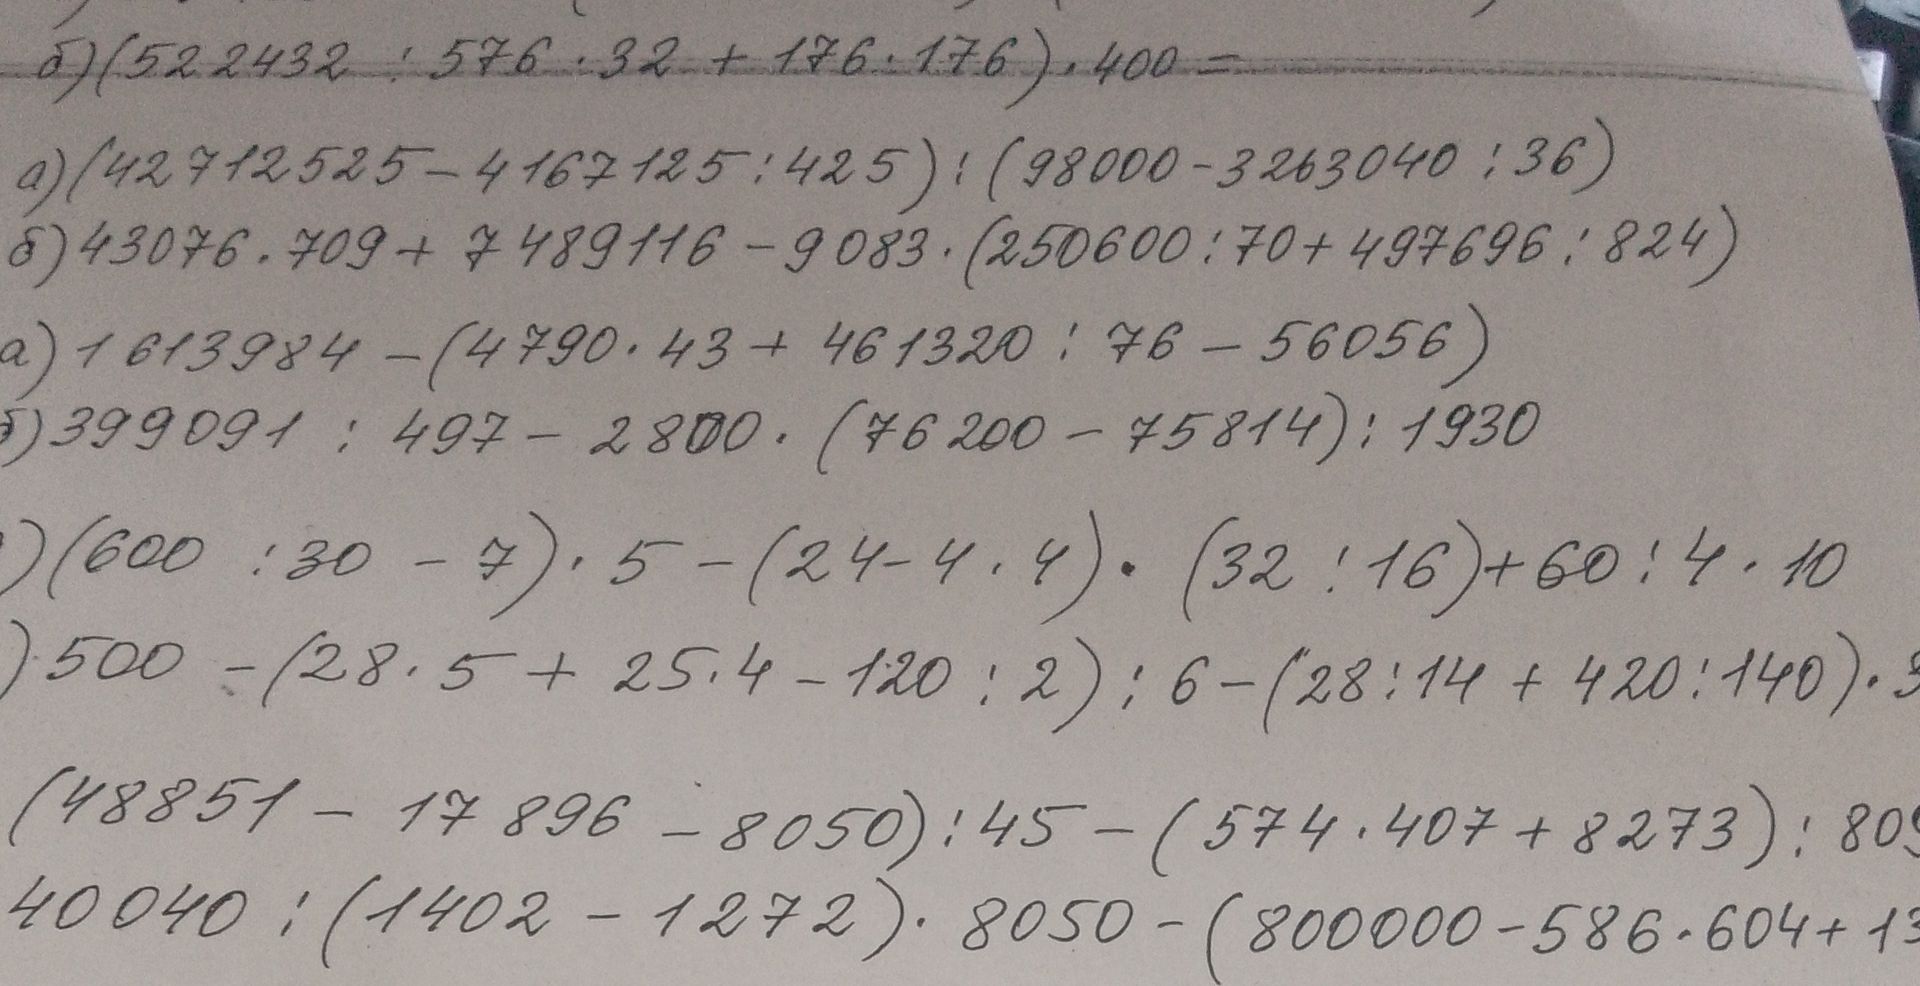 б) (522432 : 576 · 32 + 176 · 176) · 400 =
а) (42712525 - 4167125 : 425) : (98000 - 3263040 : 36)
б) 43076 · 709 + 7489116 - 9083 · (250600 : 70 + 497696 : 824)
а) 1613984 - (4790 · 43 + 461320 : 76 - 56056)
б) 399091 : 497 - 2800 · (76200 - 75814) : 1930
) (600 : 30 - 7) · 5 - (24 - 4 · 4) · (32 : 16) + 60 : 4 · 10
) 500 - (28 · 5 + 25 · 4 - 120 : 2) : 6 - (28 : 14 + 420 : 140) · 3
(48851 - 17896 - 8050) : 45 - (574 · 407 + 8273) : 809
40040 : (1402 - 1272) · 8050 - (800000 - 586 · 604 + 13